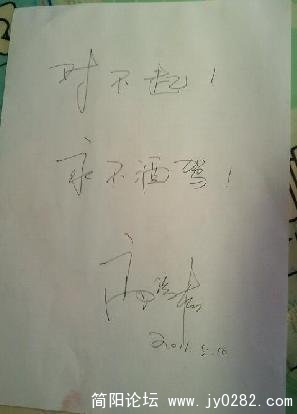 对不起！
永不酒驾！
高晓松
2011.5.10
简阳论坛 www.jy0282.com